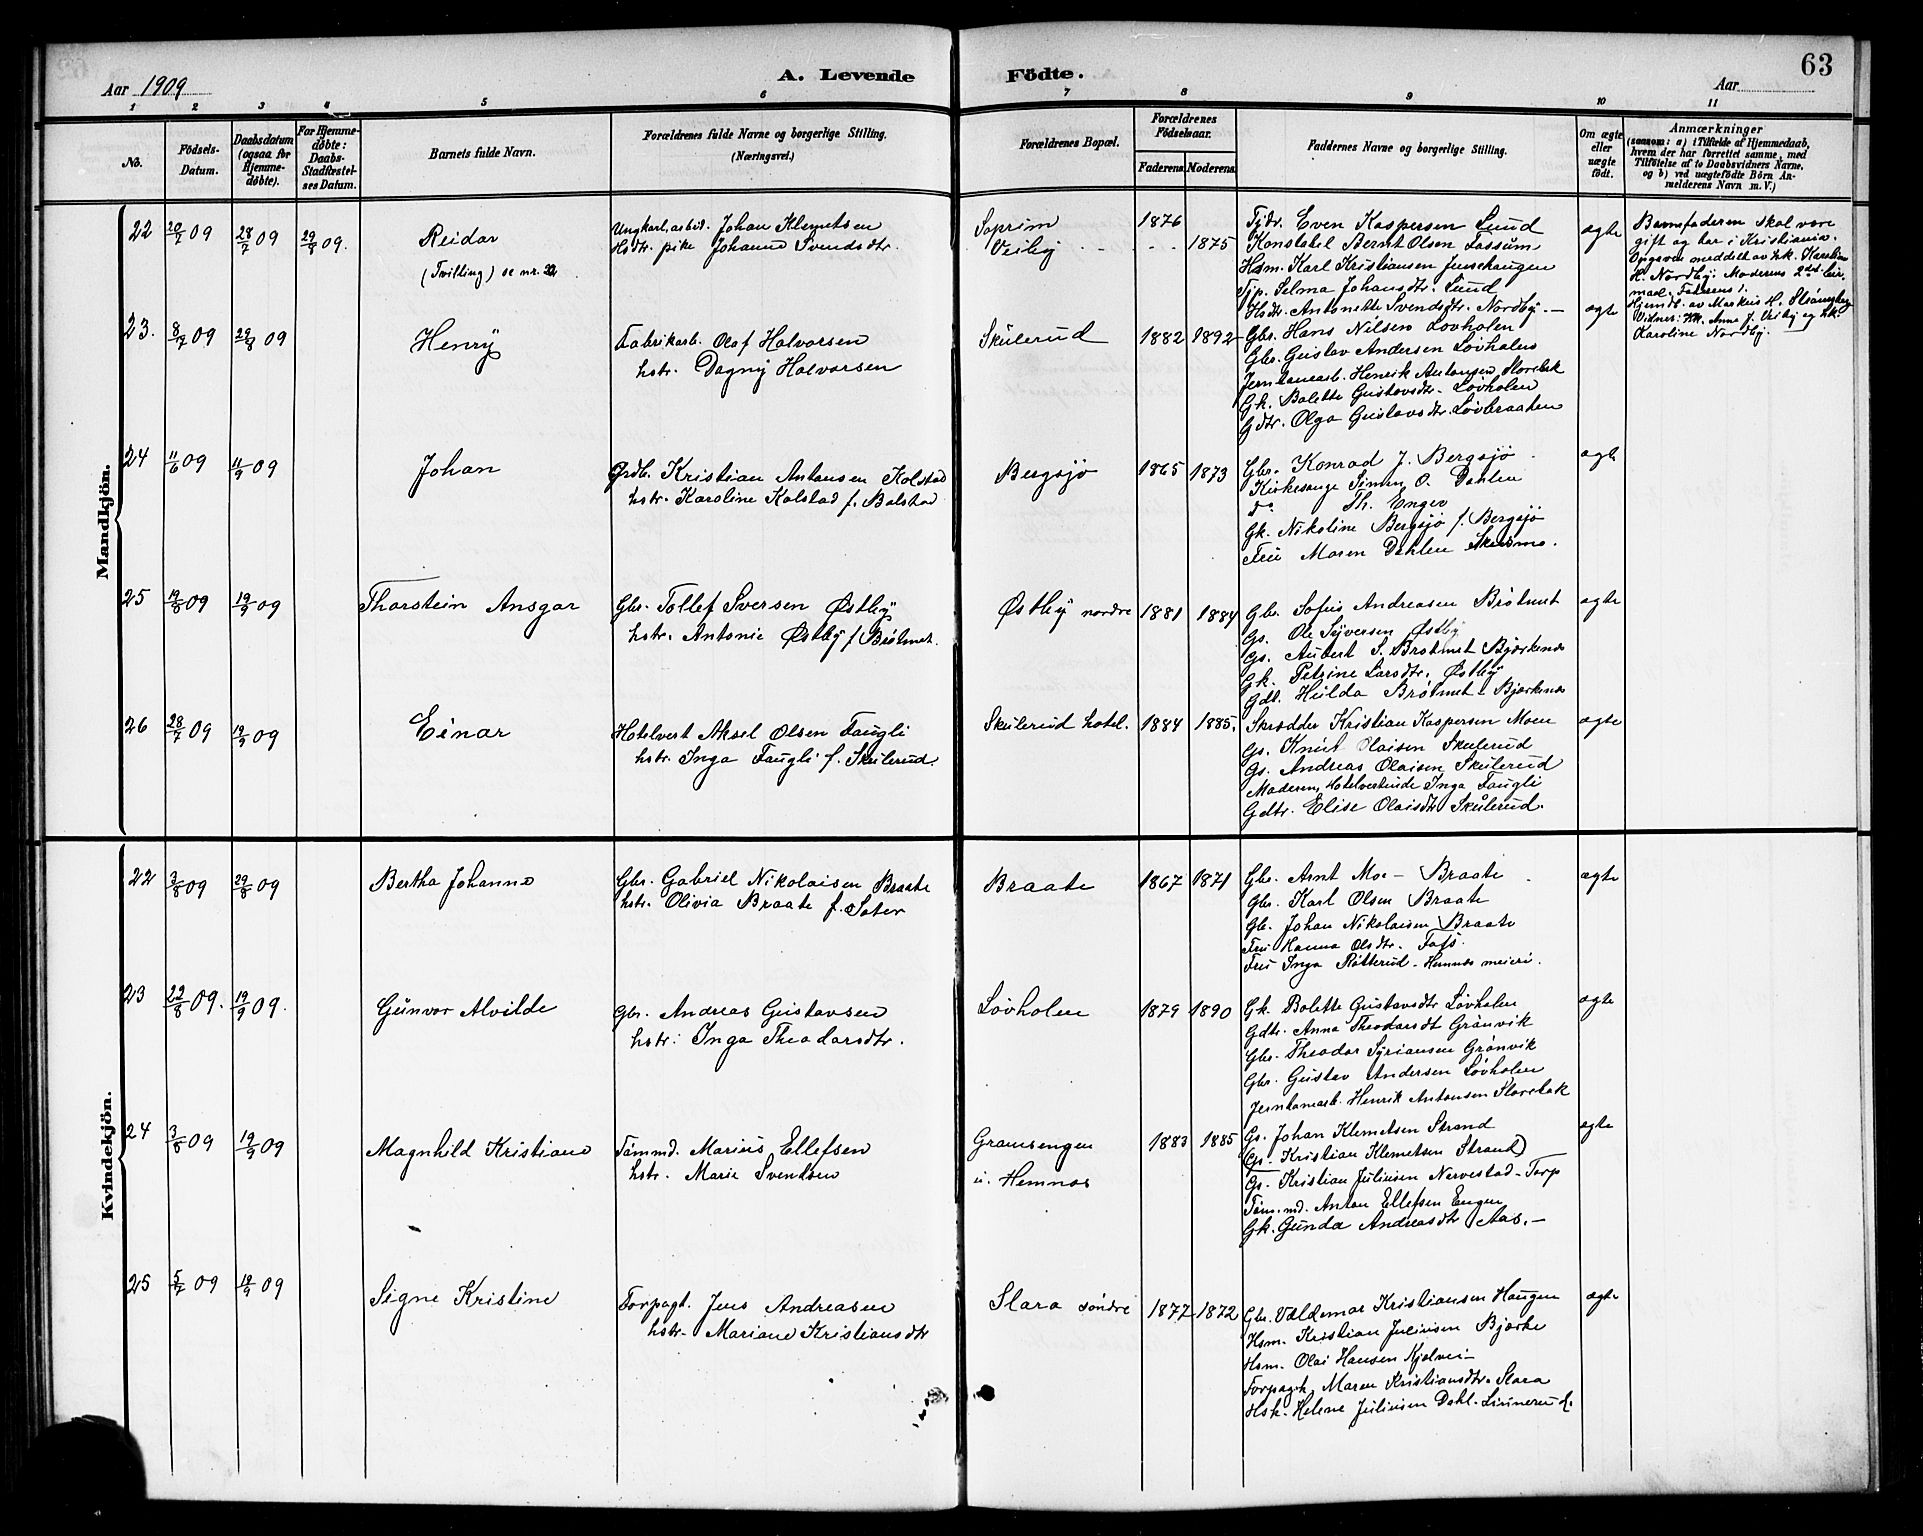 63
Aar 1909
A. Levende Födte.
Aar
1 2 3 4 5 6 7 8 9 10 11
No.
Födsels-Datum.
Daabsdatum (ogsaa for Hjemme-døbte).
For Hjemme-døbte: Daabs-Stadfæstel-ses Datum.
Barnets fulde Navn.
Forældrenes fulde Navne og borgerlige Stilling. (Næringsvei.)
Forældrenes Bopæl.
Forældrenes Födselsaar.
Faderens Moderens
Faddernes Navne og borgerlige Stilling.
Om ægte eller uægte født.
Anmærkninger
(saasom: a) i Tilfælde af Hjemmedaab, hvem der har forrettet samme, med Tilføielse af to Daabsvidners Navne, og b) ved uægtefødte Börn An-melderens Navn m. V.)
Mandkjön.
22 20/7 09 28/7 09 29/8 09. Reidar
(Tvilling) se nr.
Ungkarl, arbeid. Johan Klemetsen
Hsdtr. pike Johanne Svendsdtr.
Soprim 1876
Veiby - - - - 1875
Even Kaspersen Lund
Konstabel Bernt Olsen Fossum
Hsm. Karl Kristiansen Jenschaugen
Tjp. Selma Johansdtr. Lund
Hsdtr. Antonette Svendsdtr. Nordby. -
ægte
Barnefaderen skal være
gift og bor i Kristiania.
Opgaven meddelt av frk. Karoline
H. Nordby. Moderens 2det leir-
maal, Faderens 1.
Hjemdb. av Markus H.
Vidner: Anne J. Veiby og frk.
Karoline Nordby.
23. 8/7 09 29/8 09 Henry
Fabrikarb. Olaf Halvorsen
hstr. Dagny Halvorsen
Skulerud 1882 1892
Gbr. Hans Nilsen Lovholen
Gbr. Gustav Andersen Løvholen
Jernbanearb. Henrik Antonsen Slorebæk
Gk. Bolette Gustavsdtr. Løvholen
Gdtr. Olga Gustavsdtr. Løvbraaten
ægte
24 11/6 09 11/9 09 Johan
Grdb. Kristian Antonsen Kolstad
hstr. Karoline Kolstad f. Bolstad
Bergsjø 1865 1873
Gbr. Konrad J. Bergsjø
Kirkesange Simen O. Dahlen
do Th. Enger
Gk. Nikoline Bergsjø f. Bergsjø
Fru Maren Dahlen Skusmo.
ægte
25 19/8 09 19/9 09 Thorstein Ansgar
Gbr. Tollef Sversen Østby
hstr. Antonie Østby f. Brøtmet.
Østby nordre 1881 1884
Gbr. Sofus Andreasen Brøtmet
Gs. Ole Syversen Østby
Gs. Aubert S. Brøtmet Bjærkenes
Gk. Petrine Larsdtr. Østby
Gdt. Hulda Brøtmet - Bjerkenes
ægte
26 28/7 09 19/9 09 Einar
Hotelvert Aksel Olsen Faugli
hstr. Inga Faugli f. Skulerud.
Skulerud hotel. 1884 1885.
Skrædder Kristian Kaspersen Moen
Gs. Knut Olaisen Skulerud
Gs. Andreas Olaisen Skulerud
Moderen, Hotelvertinde Inga Faugli
Gdtr. Elise Olaisdtr. Skulerud.
ægte
Kvindekjön.
22 3/8 09 29/8 09 Bertha Johanne
Gbr. Gabriel Nikolaisen Braate
hstr. Olivia Braate f. Soter
Braate 1867 1871
Gbr. Arnt Moe - Braate
Gbr. Karl Olsen Braate
Gbr. Johan Nikolaisen Braate
Fru Hanna Olsdtr. Foss.
Fru Inga Røtterud - Hemnes meieri.
ægte
23 22/8 09. 19/9 09. Gunvor Alvilde
Gbr. Andreas Gustavsen
hstr. Inga Theodorsdtr.
Løvholen 1879 1890
Gk. Bolette Gustavsdtr Løvholen
Gdtr. Anna Theodorsdt Grønvik
Gbr. Theodor Syriansen Grønvik
Gbr. Gustav Andersen Løvholen
Jernbanearb. Henrik Antonsen Slorebæk
ægte
24 3/8 09 19/9 09 Magnhild Kristiane
Tømmd. Marius Ellefsen
hstr. Marie Svendsen
Gramsengen 1883 1885
u. Hemnes
Gs. Johan Klemetsen Strand
(Gs. Kristian Klemetsen Strand)
Gs. Kristian Juliusen Nervestad - Torp
Tøm.md. Anton Ellefsen Engen
Gk. Gunda Andreasdtr Aas. -
ægte
25 5/7 09 19/9 09 Signe Kristine
Forpagt. Jens Andreasen
hstr. Mariane Kristiansdtr
Slara søndre 1877 1872
Gbr. Valdemar Kristiansen Haugen
Hsm. Kristian Juliusen Bjørke
Hsm. Olai Hansen Kjølvei -
Forpagtk. Maren Kristiansdtr. Slara
Hsk. Helene Juliusen Dahl. Linnerud.
ægte